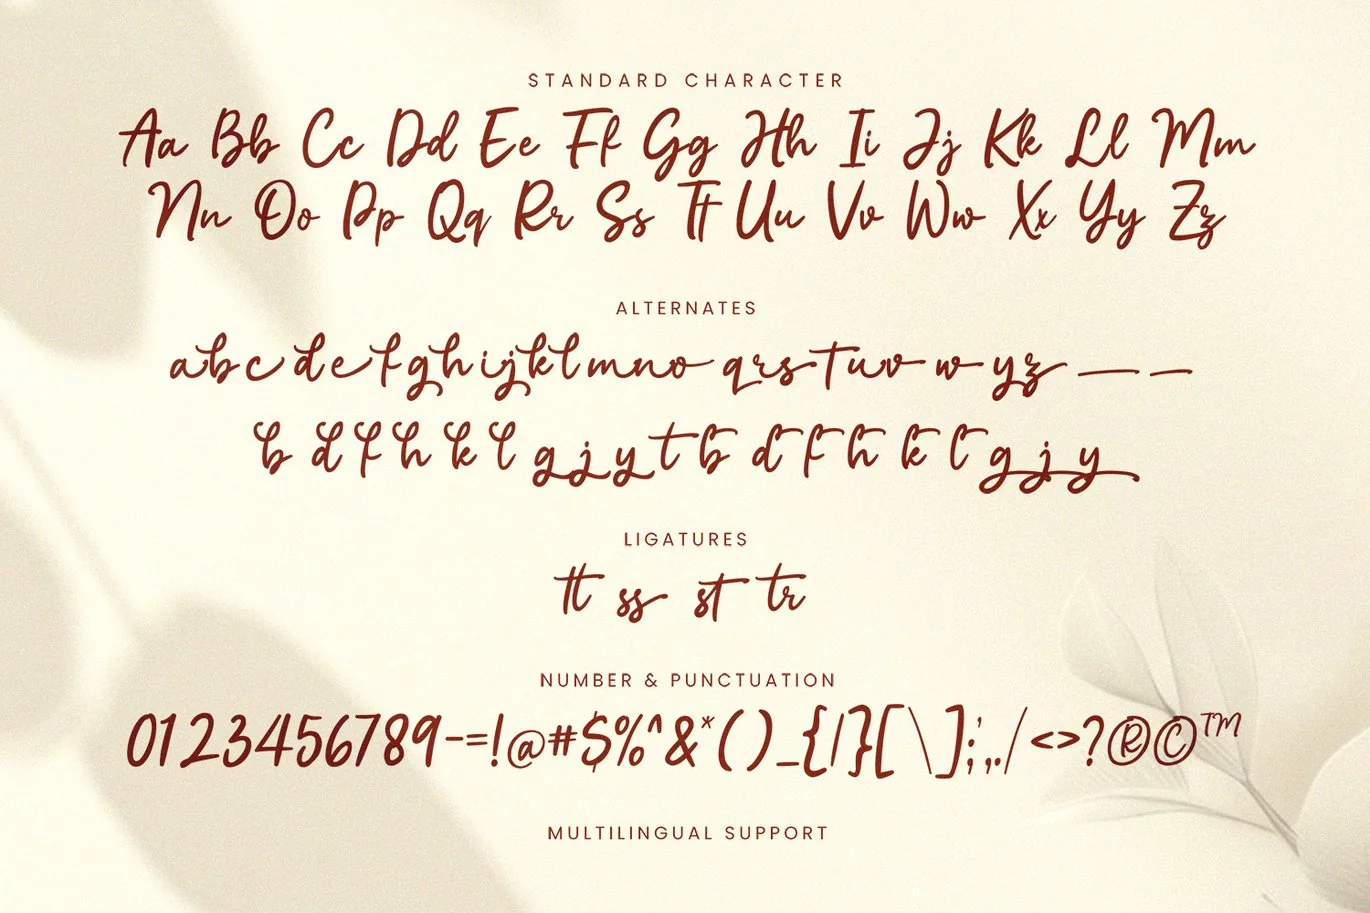 STANDARD CHARACTER
Aa Bb Cc Dd Ee Ff Gg Hh Ii Jj Kk Ll Mm
Nn Oo Pp Qq Rr Ss Tt Uu Vv Ww Xx Yy Zz
ALTERNATES
a b c d e f g h i j k l m n o q r s t u v w y z — —
b d f h k l g j y t b d f h k l g j y
LIGATURES
tt ss st tr
NUMBER & PUNCTUATION
0123456789-=!@#$%^&*()_{|}[\];',./<>?®©™
MULTILINGUAL SUPPORT